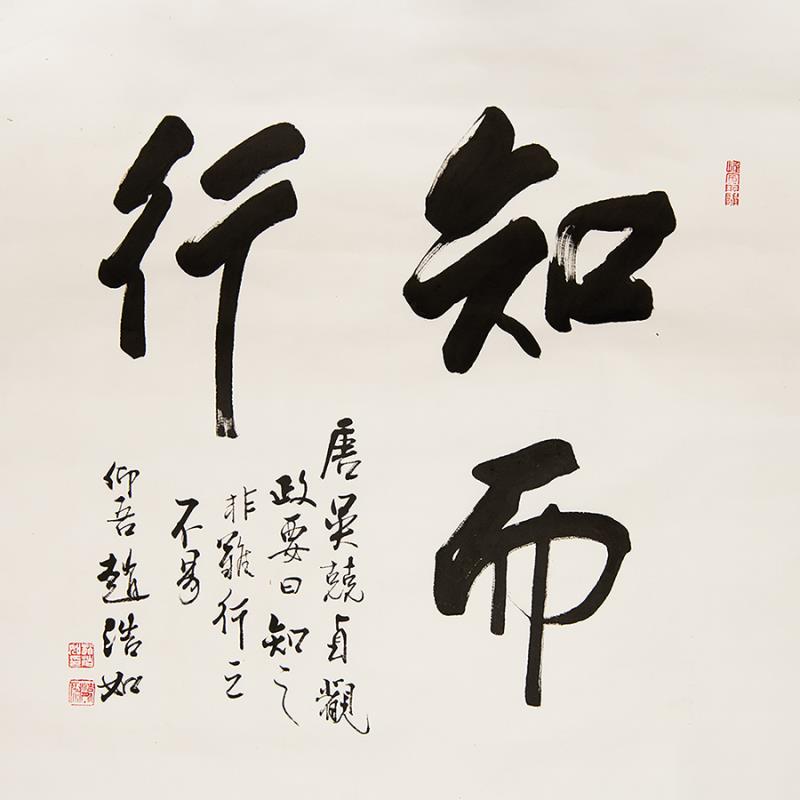 知而
行
唐吳兢貞觀
政要曰知之
非難行之
不易
仰吾趙浩如